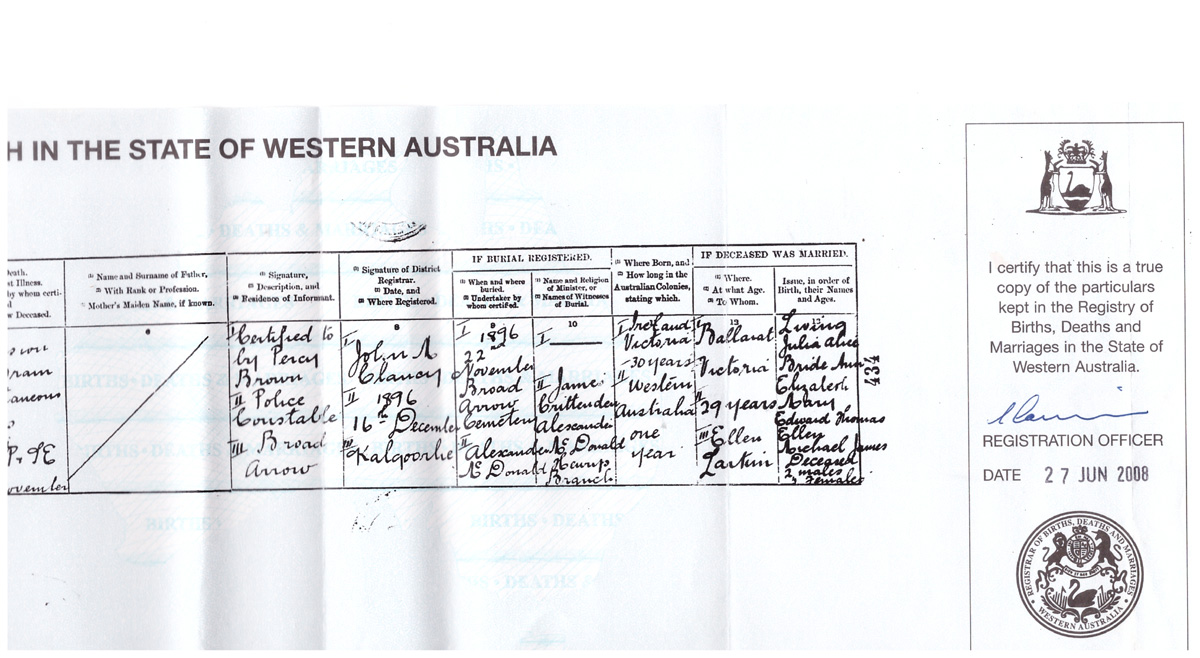 H IN THE STATE OF WESTERN AUSTRALIA
Death.
by whom certi-
w Deceased.
P. JE
ovember
Name and Surname of Father,
With Rank or Profession.
Mother's Maiden Name, if known.
6
Signature,
Description, and
Residence of Informant.
I Certified to
by Percy
Brown
II Police
Constable
III Broad
Arrow
Signature of District
Registrar.
Date, and
Where Registered.
8
I
John A
Clancy
II 1896
16th December
III
Kalgoorlie
IF BURIAL REGISTERED.
When and where
buried.
Undertaker by
whom certified.
I 1896
22nd
November
Broad
Arrow
Cemetery
II
Alexander
McDonald
Name and Religion
of Minister, or
Names of Witnesses
of Burial.
10
I
II James
Crittenden
Alexander
McDonald
Branch
Where Born, and
How long in the
Australian Colonies,
stating which.
I Ireland
Victoria
30 years
II Western
Australia
one
year
IF DECEASED WAS MARRIED.
Where.
At what Age.
To Whom.
12
I Ballarat
Victoria
II
29 years
III Ellen
Larkin
Issue, in order of
Birth, their Names
and Ages.
13
Living
Julia Alice
Bride Ann
Elizabeth
Mary
Edward Thomas
Ellen
Michael James
Deceased
2 males
females
437
I certify that this is a true
copy of the particulars
kept in the Registry of
Births, Deaths and
Marriages in the State of
Western Australia.
REGISTRATION OFFICER
DATE 27 JUN 2008
REGISTRAR OF BIRTHS, DEATHS AND MARRIAGES
WESTERN AUSTRALIA